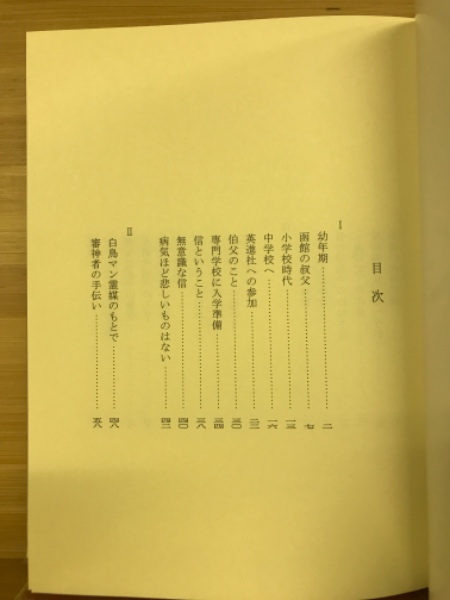 目次
I
幼年期……二
函館の叔父……七
小学校時代……一三
中学校へ……一六
英進社への参加……二二
伯父のこと……三〇
専門学校に入学準備……三四
信ということ……三八
無意識な信……四〇
病気ほど悲しいものはない……四二
II
白鳥マン霊媒のもとで……四八
審神者の手伝い……五八